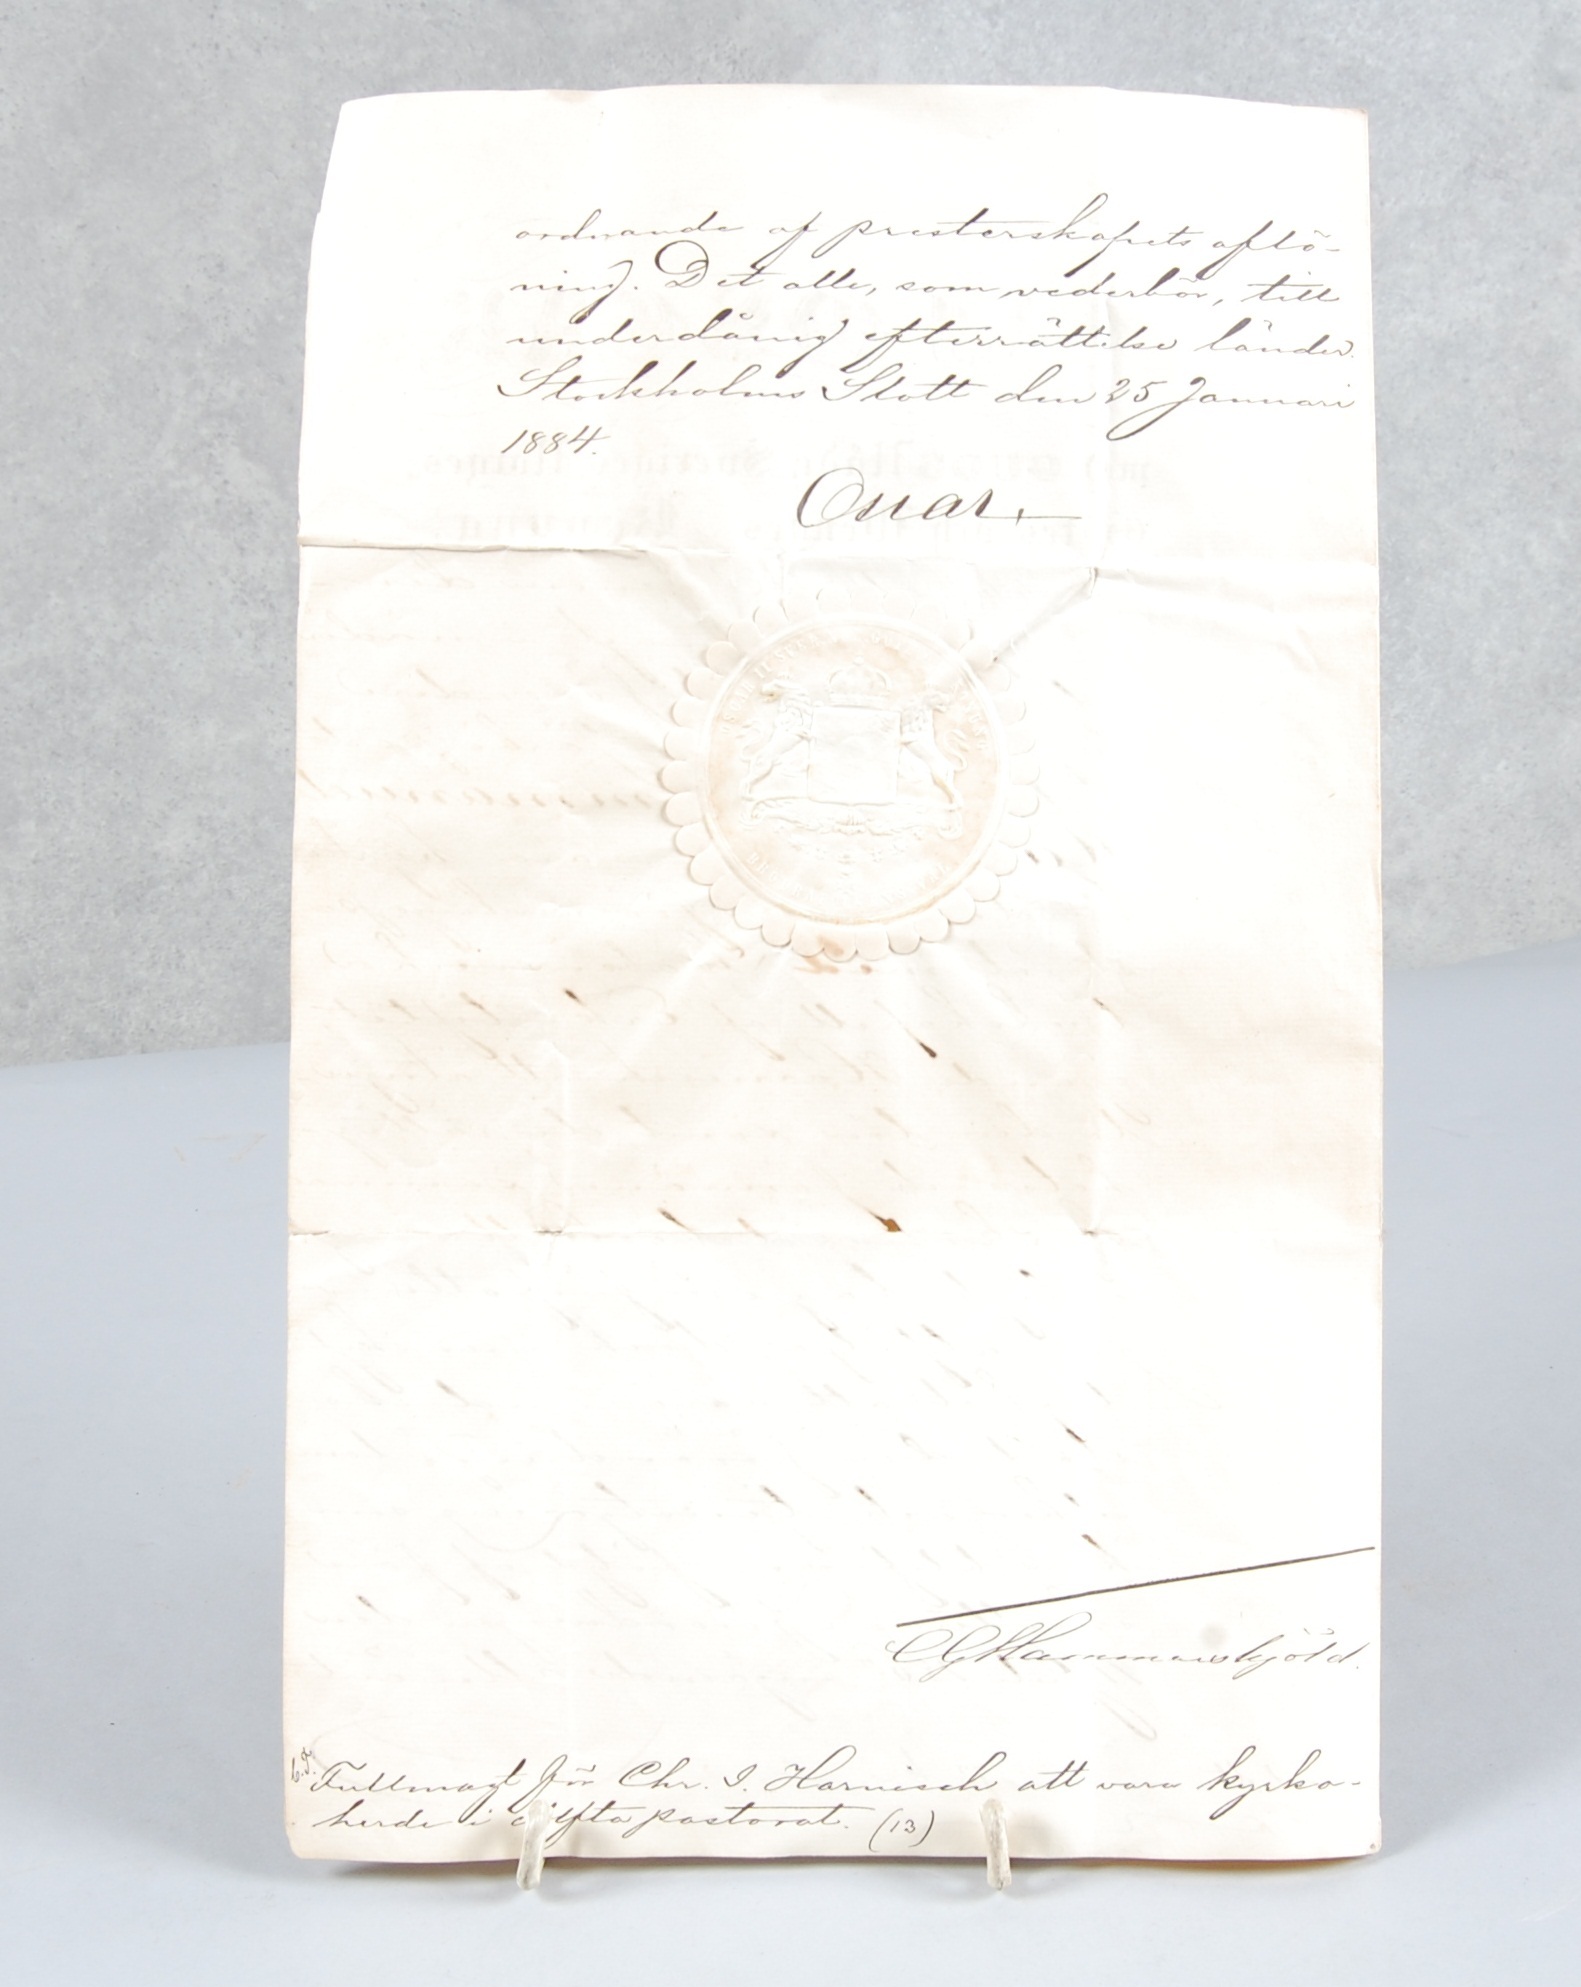 ordnande af presterskapets aflö-
ning. Det alle, som vederbör, till
underdånig efterrättelse länder.
Stockholms Slott den 25 Januari
1884.
Oscar
OSCAR II
CGHammarskjöld.
Fullmagt för Chr. I. Harnisch att vara kyrko-
herde i pastorat. (13)